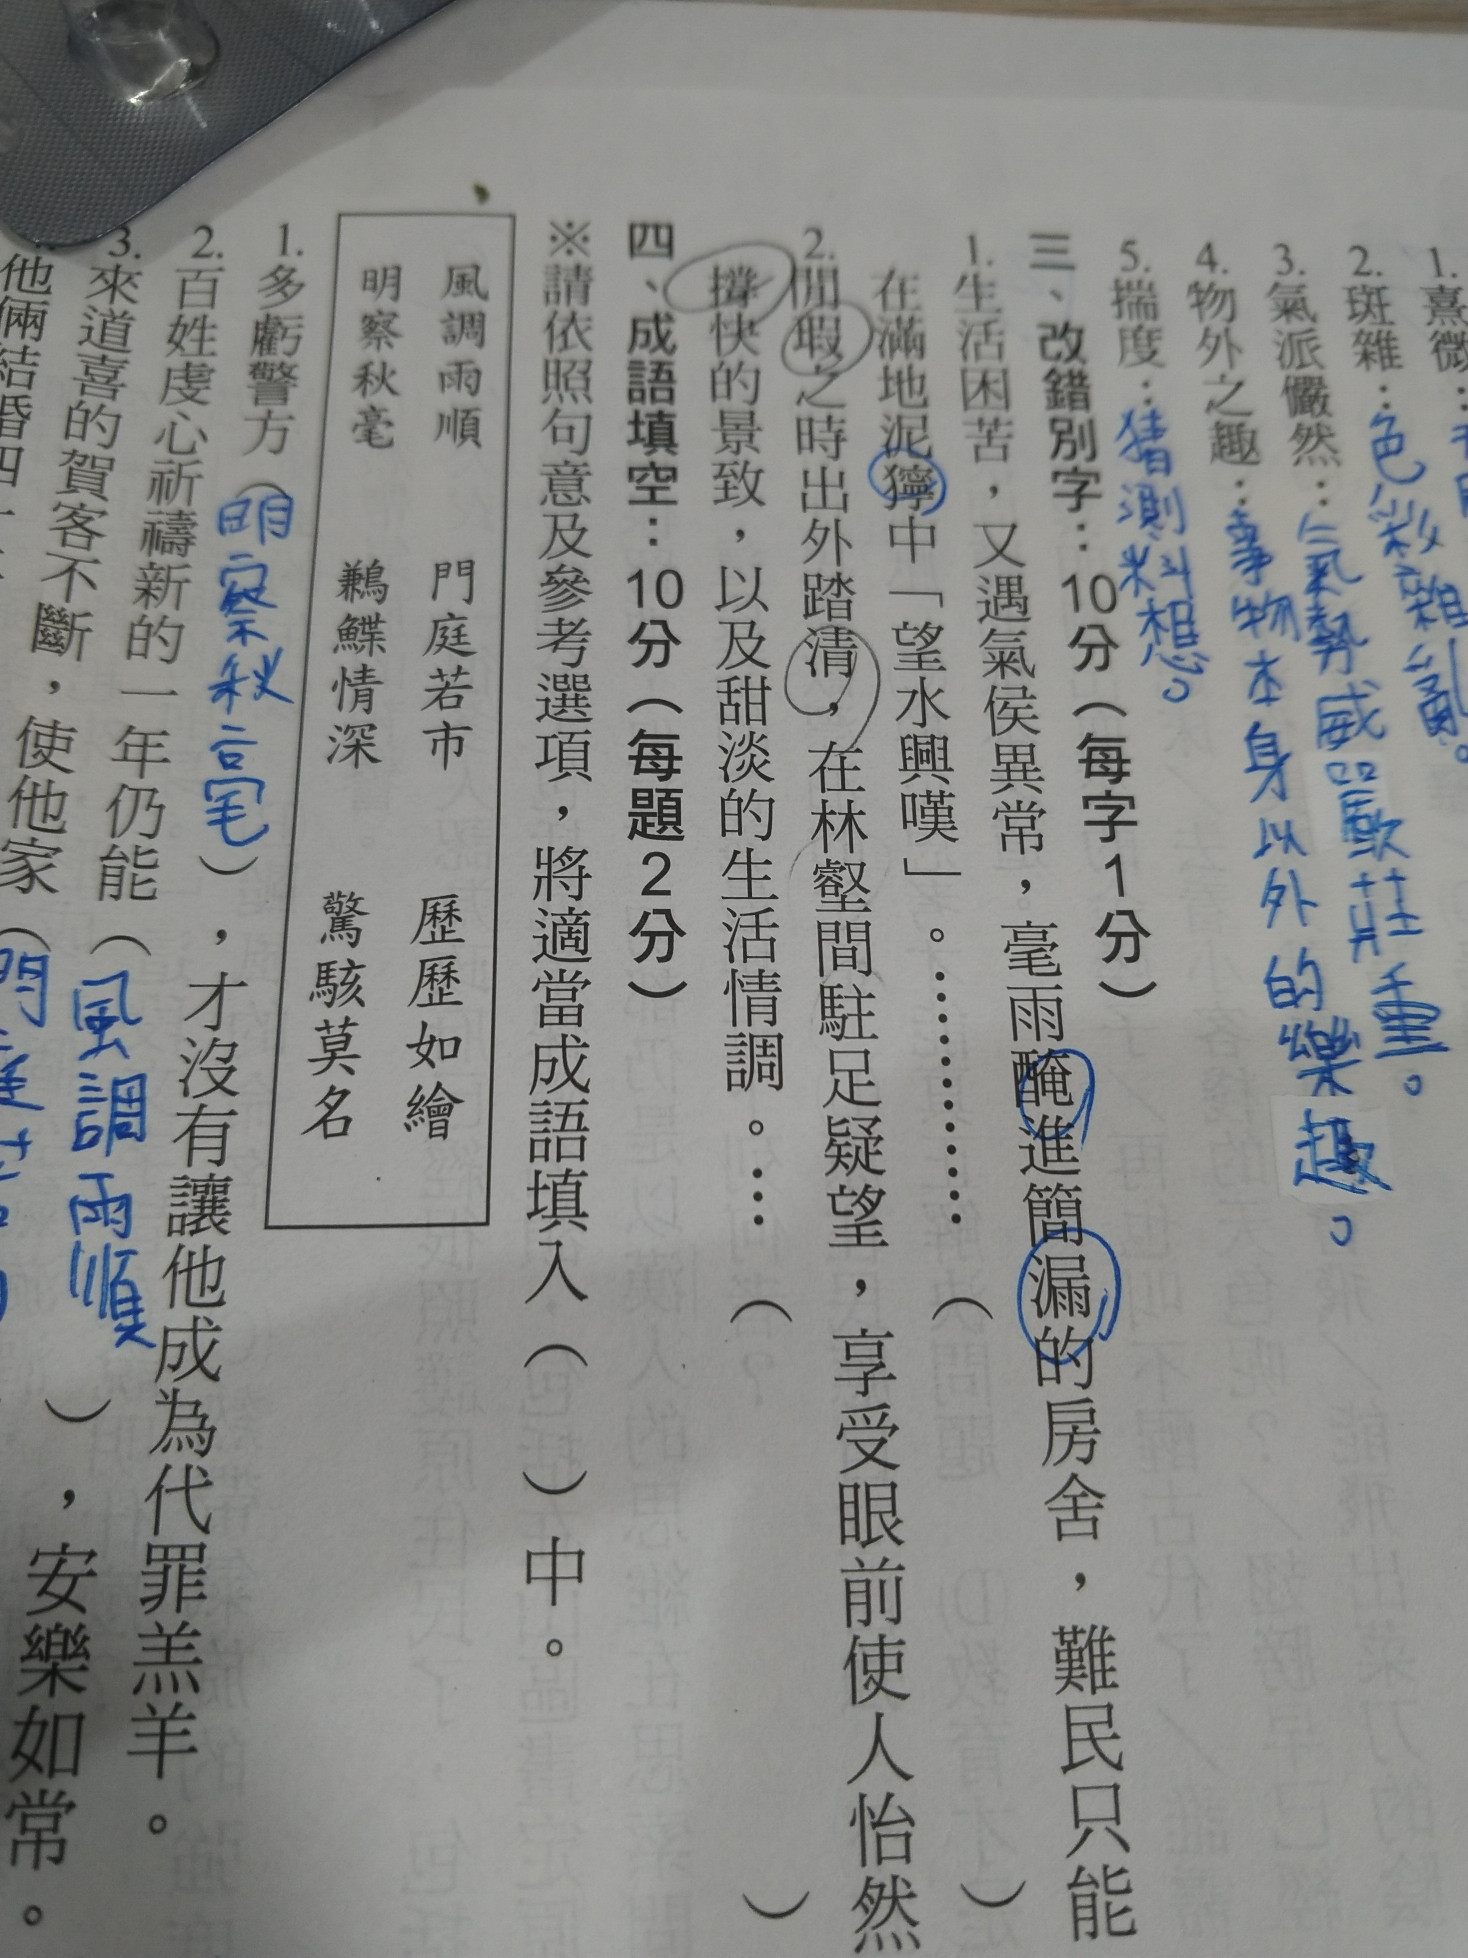 1. 熹微：
2. 斑雜：色彩雜亂。
3. 氣派儼然：氣勢威嚴莊重。
4. 物外之趣：事物本身以外的樂趣。
5. 揣度：猜測料想。
三、改錯別字：10分（每字1分）
1. 生活困苦，又遇氣侯異常，毫雨醃進簡漏的房舍，難民只能
在滿地泥獰中「望水興嘆」。…………（ ）
2. 閒暇之時出外踏清，在林壑間駐足疑望，享受眼前使人怡然
撪快的景致，以及甜淡的生活情調。…（ ）
四、成語填空：10分（每題2分）
※請依照句意及參考選項，將適當成語填入（ ）中。
風調雨順 門庭若市 歷歷如繪
明察秋毫 鶼鰈情深 驚駭莫名
1. 多虧警方（明察秋毫），才沒有讓他成為代罪羔羊。
2. 百姓虔心祈禱新的一年仍能（風調雨順），安樂如常。
3. 來道喜的賀客不斷，使他家（門庭若
他倆結婚四十